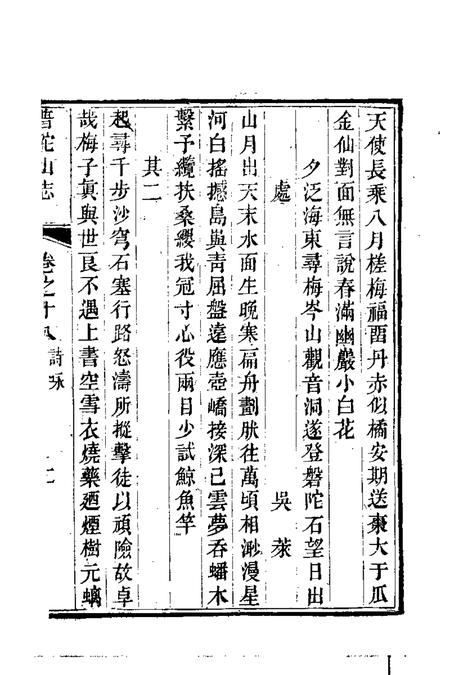 天使長乘八月槎梅福畱丹赤似橘安期送棗大于瓜
金仙對面無言說春滿幽巖小白花
夕泛海東尋梅岑山觀音洞遂登磐陀石望日出
處
吳萊
山月出天末水面生晚寒扁舟劃然往萬頃相渺漫星
河白搖撼島嶼青屈盤遠應壺嶠接深已雲夢吞蟠木
繫予纜扶桑纓我冠寸心役兩目少試鯨魚竿
其二
起尋千步沙穹石塞行路怒濤所摐擊徒以頑險故卓
哉梅子眞與世良不遇上書空雪衣燒藥迺煙樹元螭
普陀山志
卷之十八
詩咏